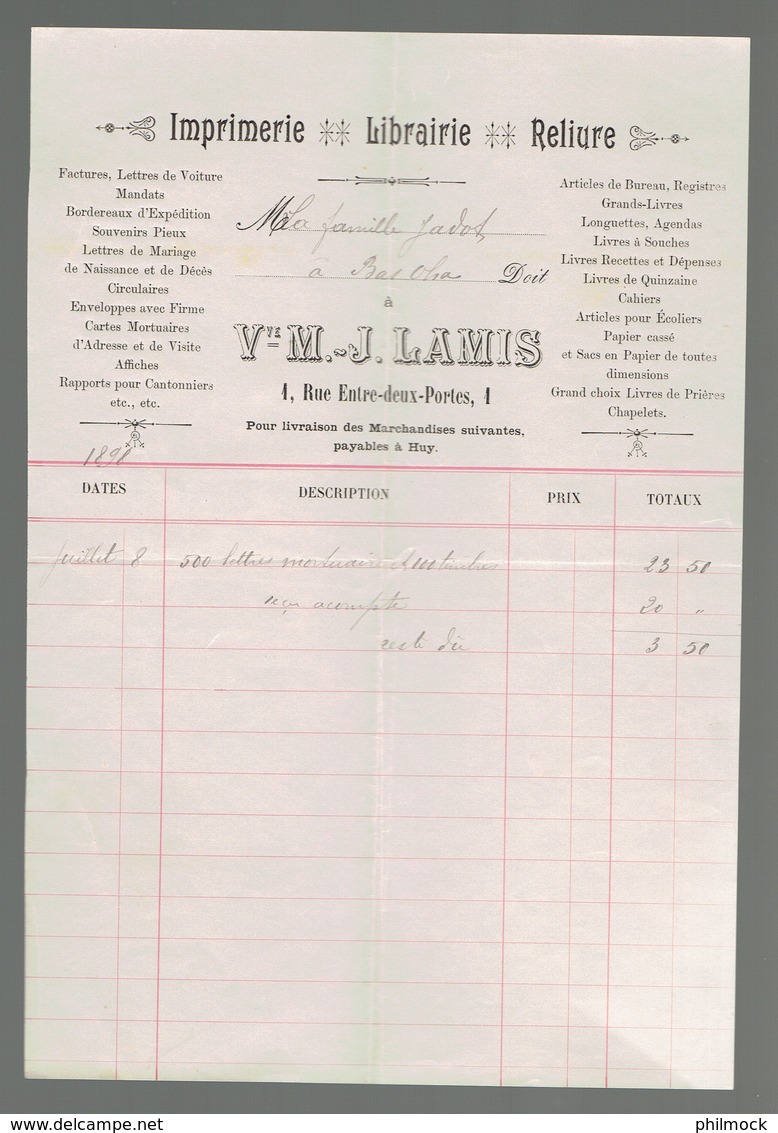 Imprimerie Librairie Reliure
Factures, Lettres de Voiture
Mandats
Bordereaux d'Expédition
Souvenirs Pieux
Lettres de Mariage
de Naissance et de Décès
Circulaires
Enveloppes avec Firme
Cartes Mortuaires
d'Adresse et de Visite
Affiches
Rapports pour Cantonniers
etc., etc.
M La famille Jadot
à Bas Oha Doit
à
Vve M.-J. LAMIS
1, Rue Entre-deux-Portes, 1
Pour livraison des Marchandises suivantes,
payables à Huy.
Articles de Bureau, Registres
Grands-Livres
Longuettes, Agendas
Livres à Souches
Livres Recettes et Dépenses
Livres de Quinzaine
Cahiers
Articles pour Écoliers
Papier cassé
et Sacs en Papier de toutes
dimensions
Grand choix Livres de Prières
Chapelets.
DATES DESCRIPTION PRIX TOTAUX
Juillet 8 500 lettres mortuaire et 100 timbres 23 50
reçu acompte 20 "
reste dû 3 50
philmock